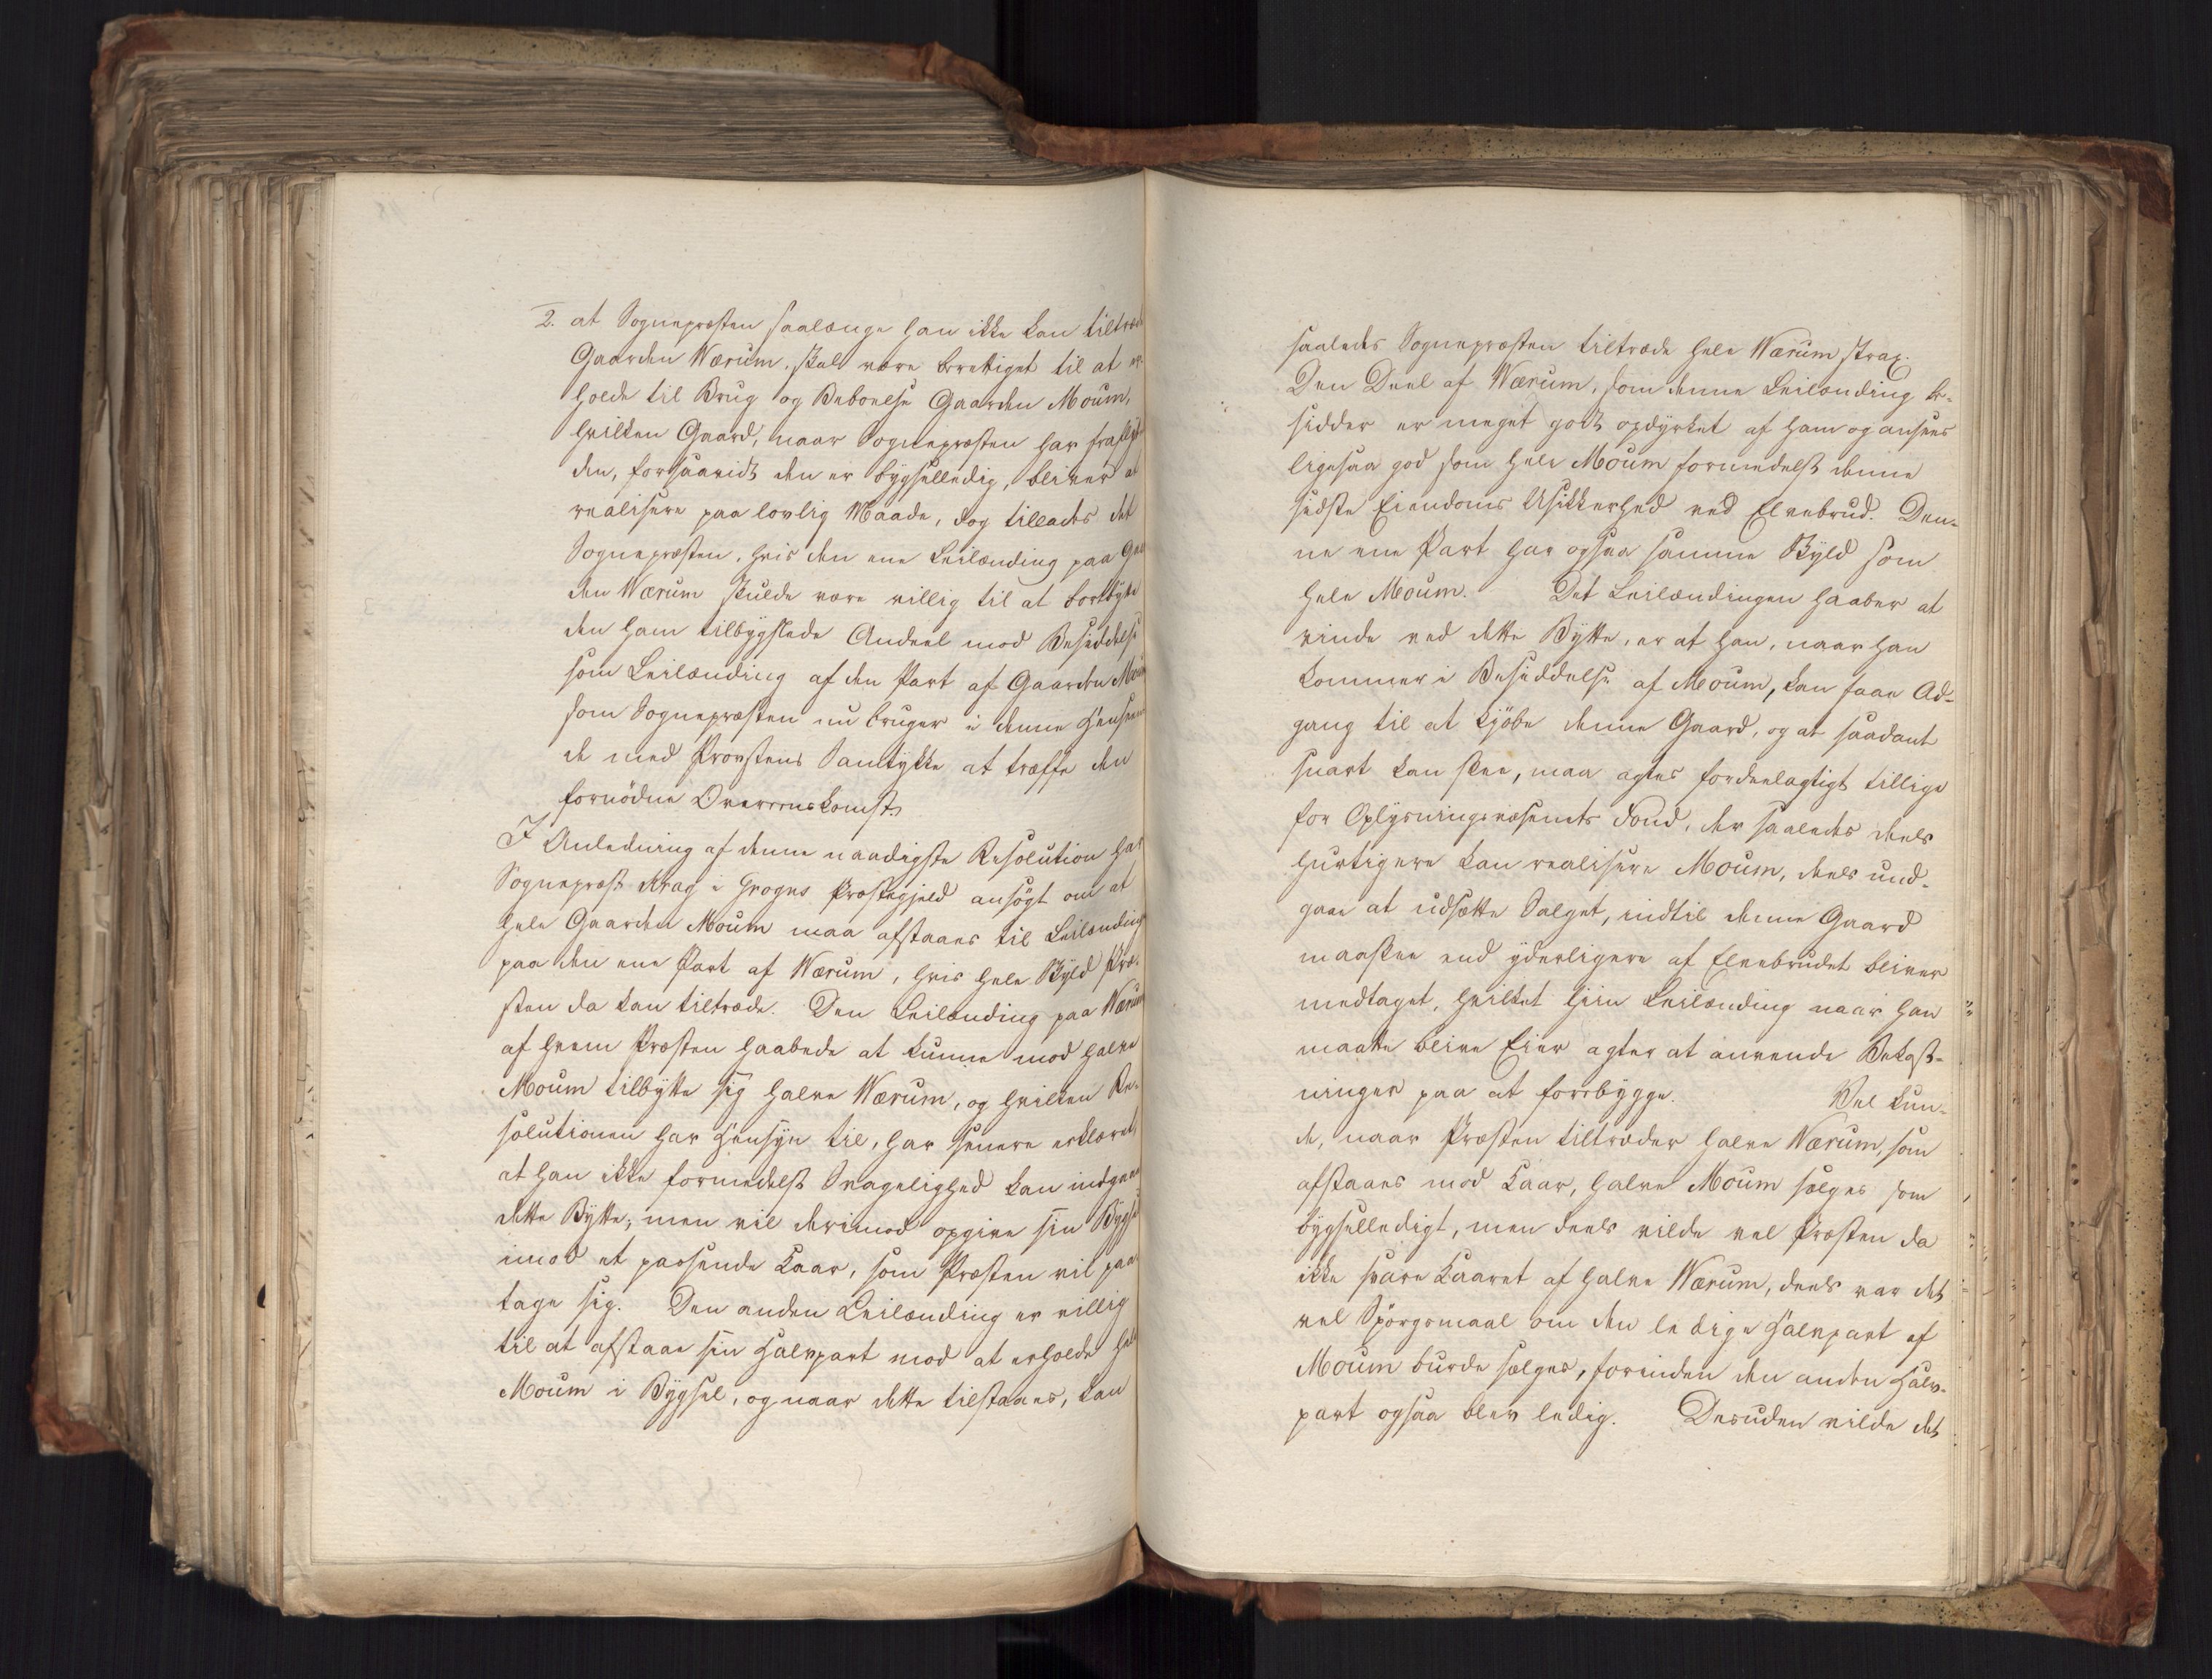 2. at Sognepræsten saalænge han ikke kan tiltræde
Gaarden Wærum, skal være berettiget til at er-
holde til Brug og Beboelse Gaarden Moum,
hvilken Gaard, naar Sognepræsten har fraflyt
den, forsaavidt den er bygselledig, bliver at
realisere paa lovlig Maade, dog tillades det
Sognepræsten, hvis den ene Leilænding paa Gaar
den Wærum skulde være villig til at bortbytte
den ham tilbygslede Andeel mod Besiddelse
som Leilænding af den Part af Gaarden Moum
som Sognepræsten nu bruger i denne Henseen
de med Provstens Samtykke at træffe den
fornödne Overenskomst.
I Anledning af denne naadigste Resolution har
Sognepræst Krag i Grogns Præstegjeld ansögt om at
hele Gaarden Moum maa afstaaes til Leilænding
paa den ene Part af Wærum, hvis hele Skyld Præ-
sten da kan tiltræde. Den Leilænding paa Wærum
af hvem Præsten haabede at kunne mod halve
Moum tilbytte sig halve Wærum, og hvilken Re-
solutionen har Hensyn til, har senere erklæret,
at han ikke formedelst Svagelighed kan indgaae
dette Bytte; men vil derimod opgive sin Bygsel
imod et passende Kaar, som Præsten vil paa
tage sig. Den anden Leilænding er villig
til at afstaae sin Halvpart mod at erholde hele
Moum i Bygsel, og naar dette tilstaaes, kan
saaledes Sognepræsten tiltræde hele Wærum strax.
Den Deel af Wærum, som denne Leilænding be-
sidder er meget godt opdyrket af ham og ansees
ligesaa god som hele Moum formedelst denne
sidste Eiendoms Usikkerhed ved Elvebrud. Den-
ne ene Part har ogsaa samme Skyld som
hele Moum. Det Leilændingen haaber at
vinde ved dette Bytte, er at han, naar han
kommer i Besiddelse af Moum, kan faae Ad-
gang til at kjöbe denne Gaard, og at saadant
snart kan skee, maa agtes fordeelagtigt tillige
for Oplysningsvæsenets Fond, der saaledes deels
hurtigere kan realisere Moum, deels und-
gaae at udsætte Salget, indtil denne Gaard
maaskee end yderligere af Elvebrudet bliver
medtaget, hvilket hiin Leilænding naar han
maatte blive Eier agter at anvende Bekost-
ninger paa at forebygge. Vel kun-
de, naar Præsten tiltræder halve Wærum, som
afstaaes mod Kaar, halve Moum sælges som
bygselledigt, men deels vilde vel Præsten da
ikke svare Kaaret af halve Wærum, deels var det
vel Spörgsmaal om den ledige Halvpart af
Moum burde sælges, forinden den anden Halv-
part ogsaa blev ledig. Desuden vilde det